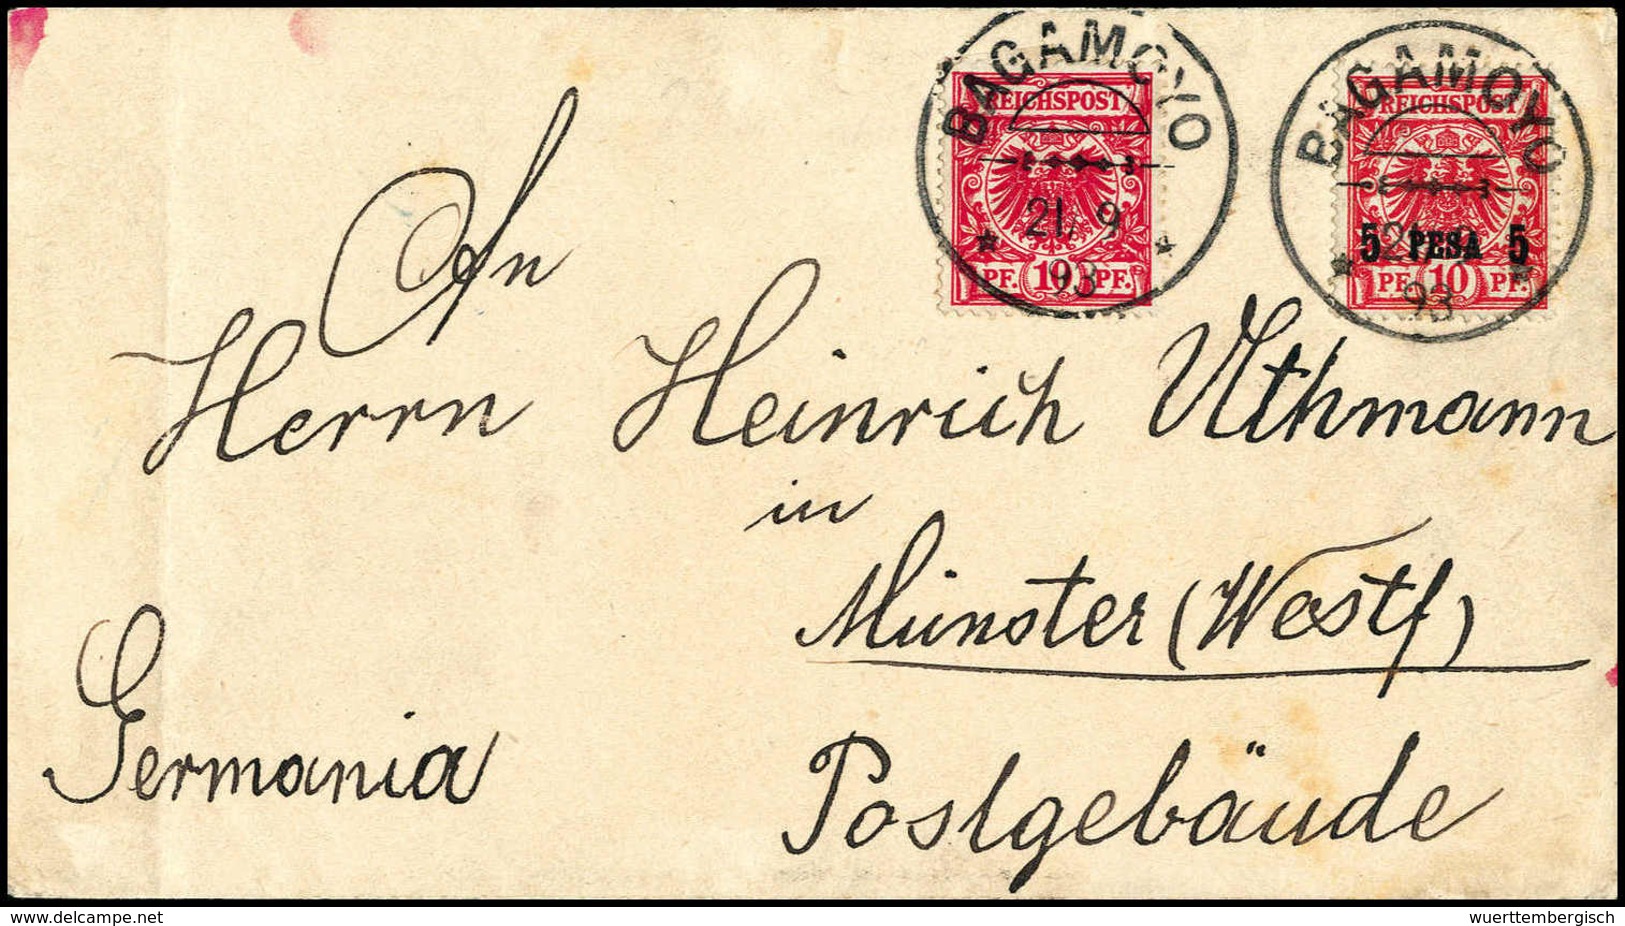 BAGAMOYO
REICHSPOST
21/9
93
PF. 10 PF.
BAGAMOYO
REICHSPOST
5 PESA 5
21/9
93
PF. 10 PF.
An
Herrn Heinrich Uthmann
in
Münster (Westf)
Germania
Postgebäude
www.delcampe.net
wuerttembergisch